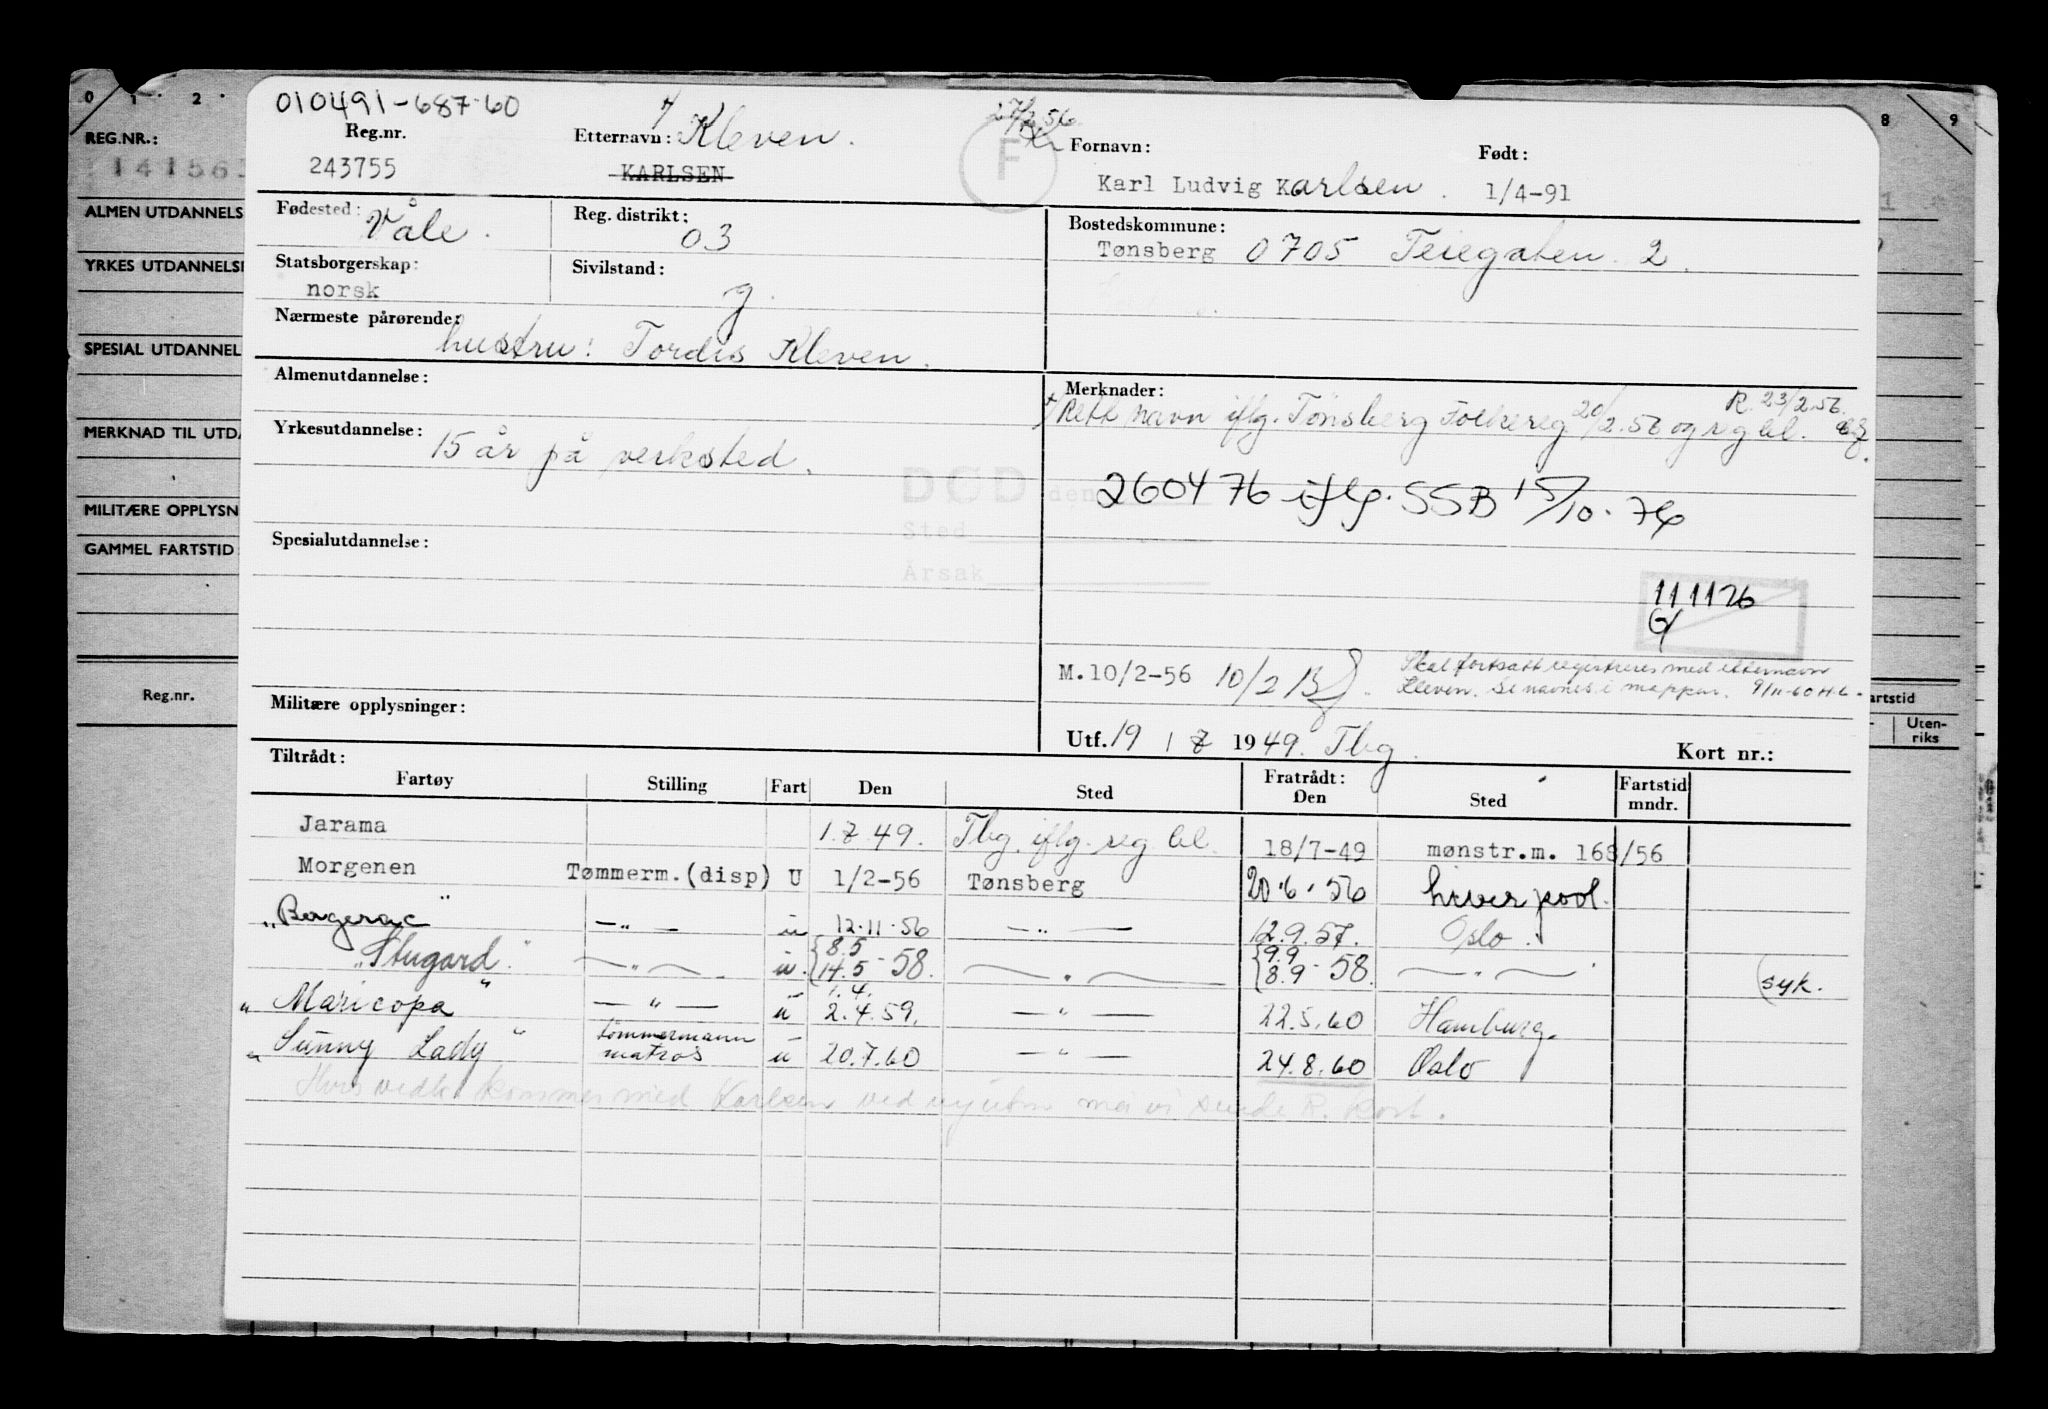 0 1 2 8 9
REG.NR.:
ALMEN UTDANNELS
YRKES UTDANNELSE
SPECIAL UTDANNEL
MERKNAD TIL UTDA
MILITÆRE OPPLYSN
GAMMEL FARTSTID
Reg.nr.
artstid
Uten-
riks
010491-687-60
Reg.nr.
243755
Etternavn: Kleven.
KARLSEN
27/2 56
F
Fornavn:
Karl Ludvig Karlsen.
Født:
1/4-91
Fødested: Våle.
Reg. distrikt: 03
Bostedskommune:
Tønsberg 0705 Teiegaten 2.
Statsborgerskap:
norsk
Sivilstand: g.
Nærmeste pårørende:
hustru: Tordis Kleven.
Almenutdannelse:
Merknader: R. 23/2.56.
Rett navn iflg. Tønsberg Folkereg 20/2.56 og rg bl.
Yrkesutdannelse:
15 år på verksted.
DØD den 260476 iflg. SSB 15/10-76
Sted
Årsak
Spesialutdannelse:
111126
M.10/2-56 10/2
Skal fortsatt registreres med etternavn
Kleven. Se navnes i mappen. 9/11-60 H.L.
Militære opplysninger:
Utf. 19 / 7 1949. Tbg.
Kort nr.:
Tiltrådt:
Fartøy Stilling Fart Den Sted Fratrådt: Den Sted Fartstid mndr.
Jarama 1.7.49. Tbg. iflg. reg bl. 18/7-49 mønstr.m. 168/56
Morgenen Tømmerm.(disp) U 1/2-56 Tønsberg 20.6.56 Liverpool.
"Bergerac" —"— u 12.11.56 —"— 12.9.57. Oslo.
"Stugard." —"— u. {8.5 14.5-58. —"— {9.9 8.9-58. —"— (syk.
"Maricopa" —"— u 1.4. 2.4.59. —"— 22.5.60 Hamburg.
"Sunny Lady" tømmermann matros u 20.7.60 —"— 24.8.60 Oslo
Hvis vedk. kommer med Karlsen ved ny utm må vi sende R. kort.